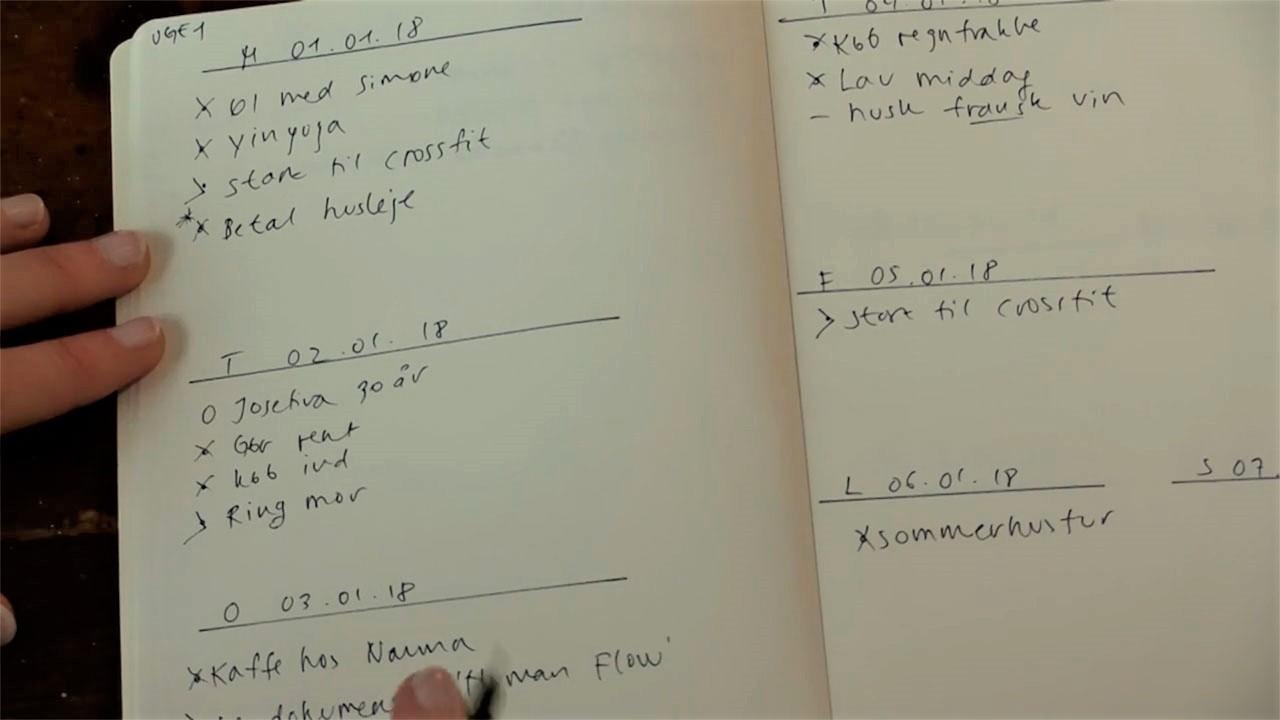 UGE 1
M 01.01.18
x Øl med simone
x yin yoga
> start til crossfit
* x Betal husleje
T 02.01.18
O Josefina 30 år
x Gør rent
x køb ind
> Ring mor
O 03.01.18
x Kaffe hos Nanna
dokumen 'Human Flow'
x Køb regnfrakke
x Lav middag
- husk fransk vin
F 05.01.18
> start til crossfit
L 06.01.18
S 07.
x sommerhustur